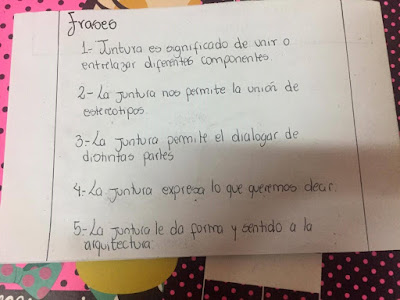 Frases
1- Juntura es significado de unir o
entrelazar diferentes componentes.
2- La juntura nos permite la unión de
estereotipos.
3- La juntura permite el dialogar de
distintas partes
4- La juntura expresa lo que queremos decir.
5- La juntura le da forma y sentido a la
arquitectura.